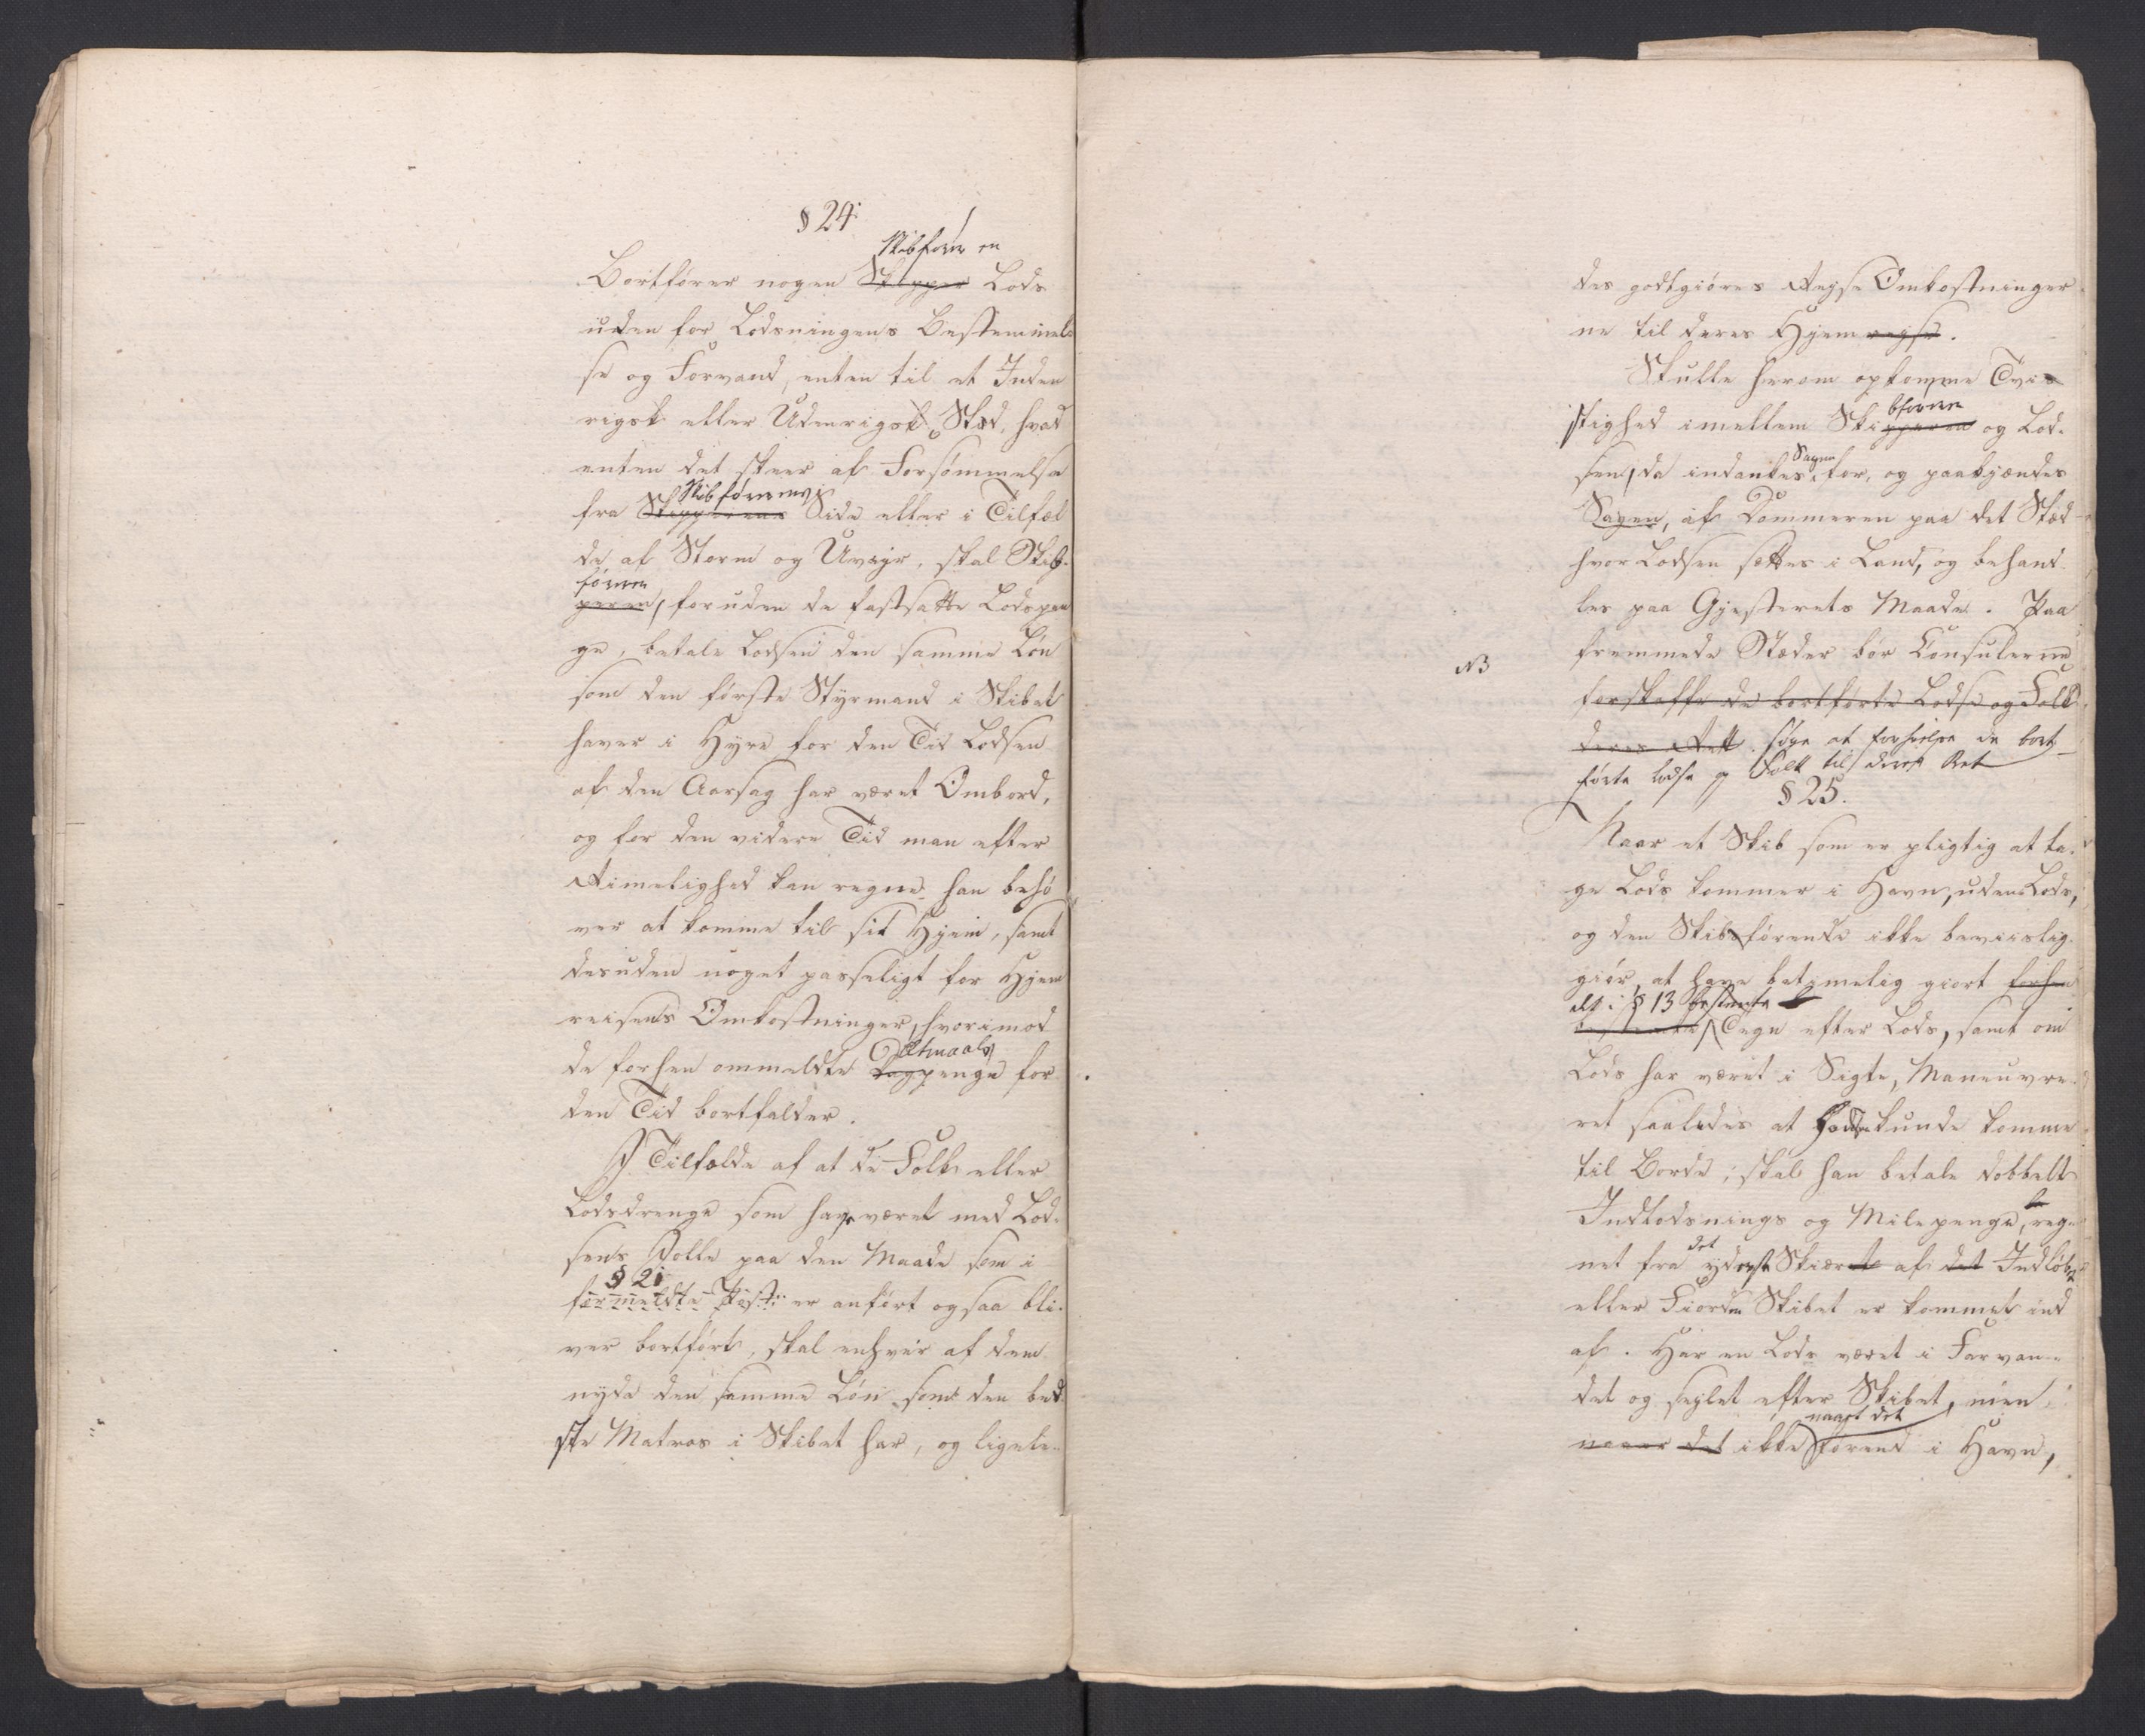 § 24
Skibsfører en
Bortfører nogen Skipper Lods
uden for Lodsningens Bestemmel-
se og Forvand, enten til et Inden
rigsk eller Udenrigsk Sted, hvad
enten det skeer af Forsømmelse
Skibsførerens
fra Skipperens Side eller i Tilfæl
de af Storm og Uveyr, skal Skib-
føreren
peren, foruden de fastsatte Lodspen
ge, betale Lodsen den samme Løn
som den første Styrmand i Skibet
haver i Hyre for den Tid Lodsen
af den Aarsag har været Ombord,
og for den videre Tid man efter
Rimelighed kan regne han behø
ver at komme til sit Hjem, samt
desuden noget passeligt for Hjem
reisens Omkostninger, hvorimod
Etmaals
de forhen ommeldte Dagpenge for
den Tid bortfalder.
I Tilfælde af at de Folk eller
Lodsdrenge som have været med Lod-
sens Jolle paa den Maade som i
§ 21
formeldte Post er anført ogsaa bli-
ver bortført, skal enhver af dem
nyde den samme Løn som den bed
ste Matros i Skibet har, og ligele-
des godtgiøres Reyse Omkostninger
ne til deres Hjem reyse.
Skulle herom opkomme Tvi-
bføreren
stighed imellem Skipperen og Lod-
Sagen
sen, da indankes for, og paakjændes
Sagen, af Dommeren paa det Stæd
hvor Lodsen sættes i Land, og behand
les paa Gjesterets Maade. Paa
fremmede Stæder bør Consulerne
NB
forskaffe de bortførte Lodse og Folk
deres Rett. søge at forhielpe de bort-
førte Lodse og Folk til deres Ret
§ 25.
Naar et Skib som er pligtig at ta-
ge Lods kommer i Havn, uden Lods,
og den Skibsførende ikke beviislig
giør, at have betimelig giort forhen
det i § 13 bestemte
bestemte Tegn efter Lods, samt om
Lods har været i Sigte, Maneuvre-
ret saaledes at Lodsen kunde komme
til Borde; skal han betale dobbelt
Indlodsnings og Milepenge, reg-
det
net fra yderste Skiæret af det Indløb
eller Fiorden Skibet er kommet ind
af. Har en Lods været i Farvan-
det og sejlet efter Skibet, men
naaet det
naaer det ikke førend i Havn,